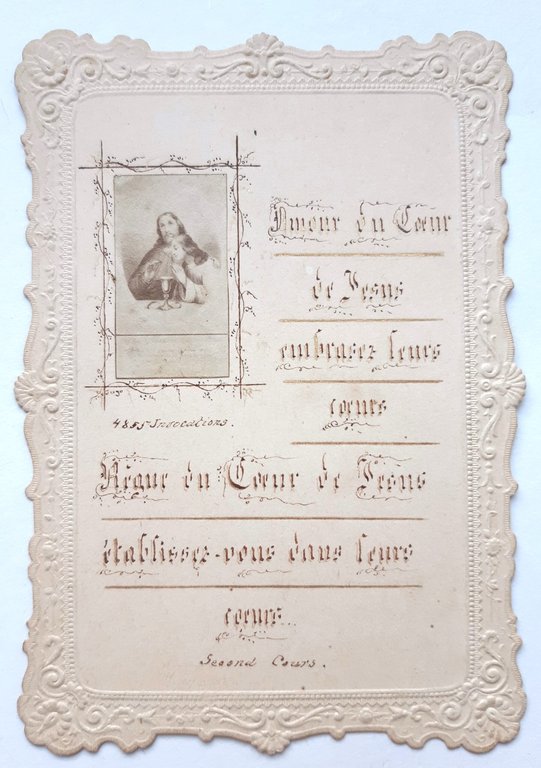 Amour du Cœur
de Jesus
embrasez leurs
cœurs
4855 Invocations.
Règne du Cœur de Jesus
établissez-vous dans leurs
cœurs..
Second Cours.